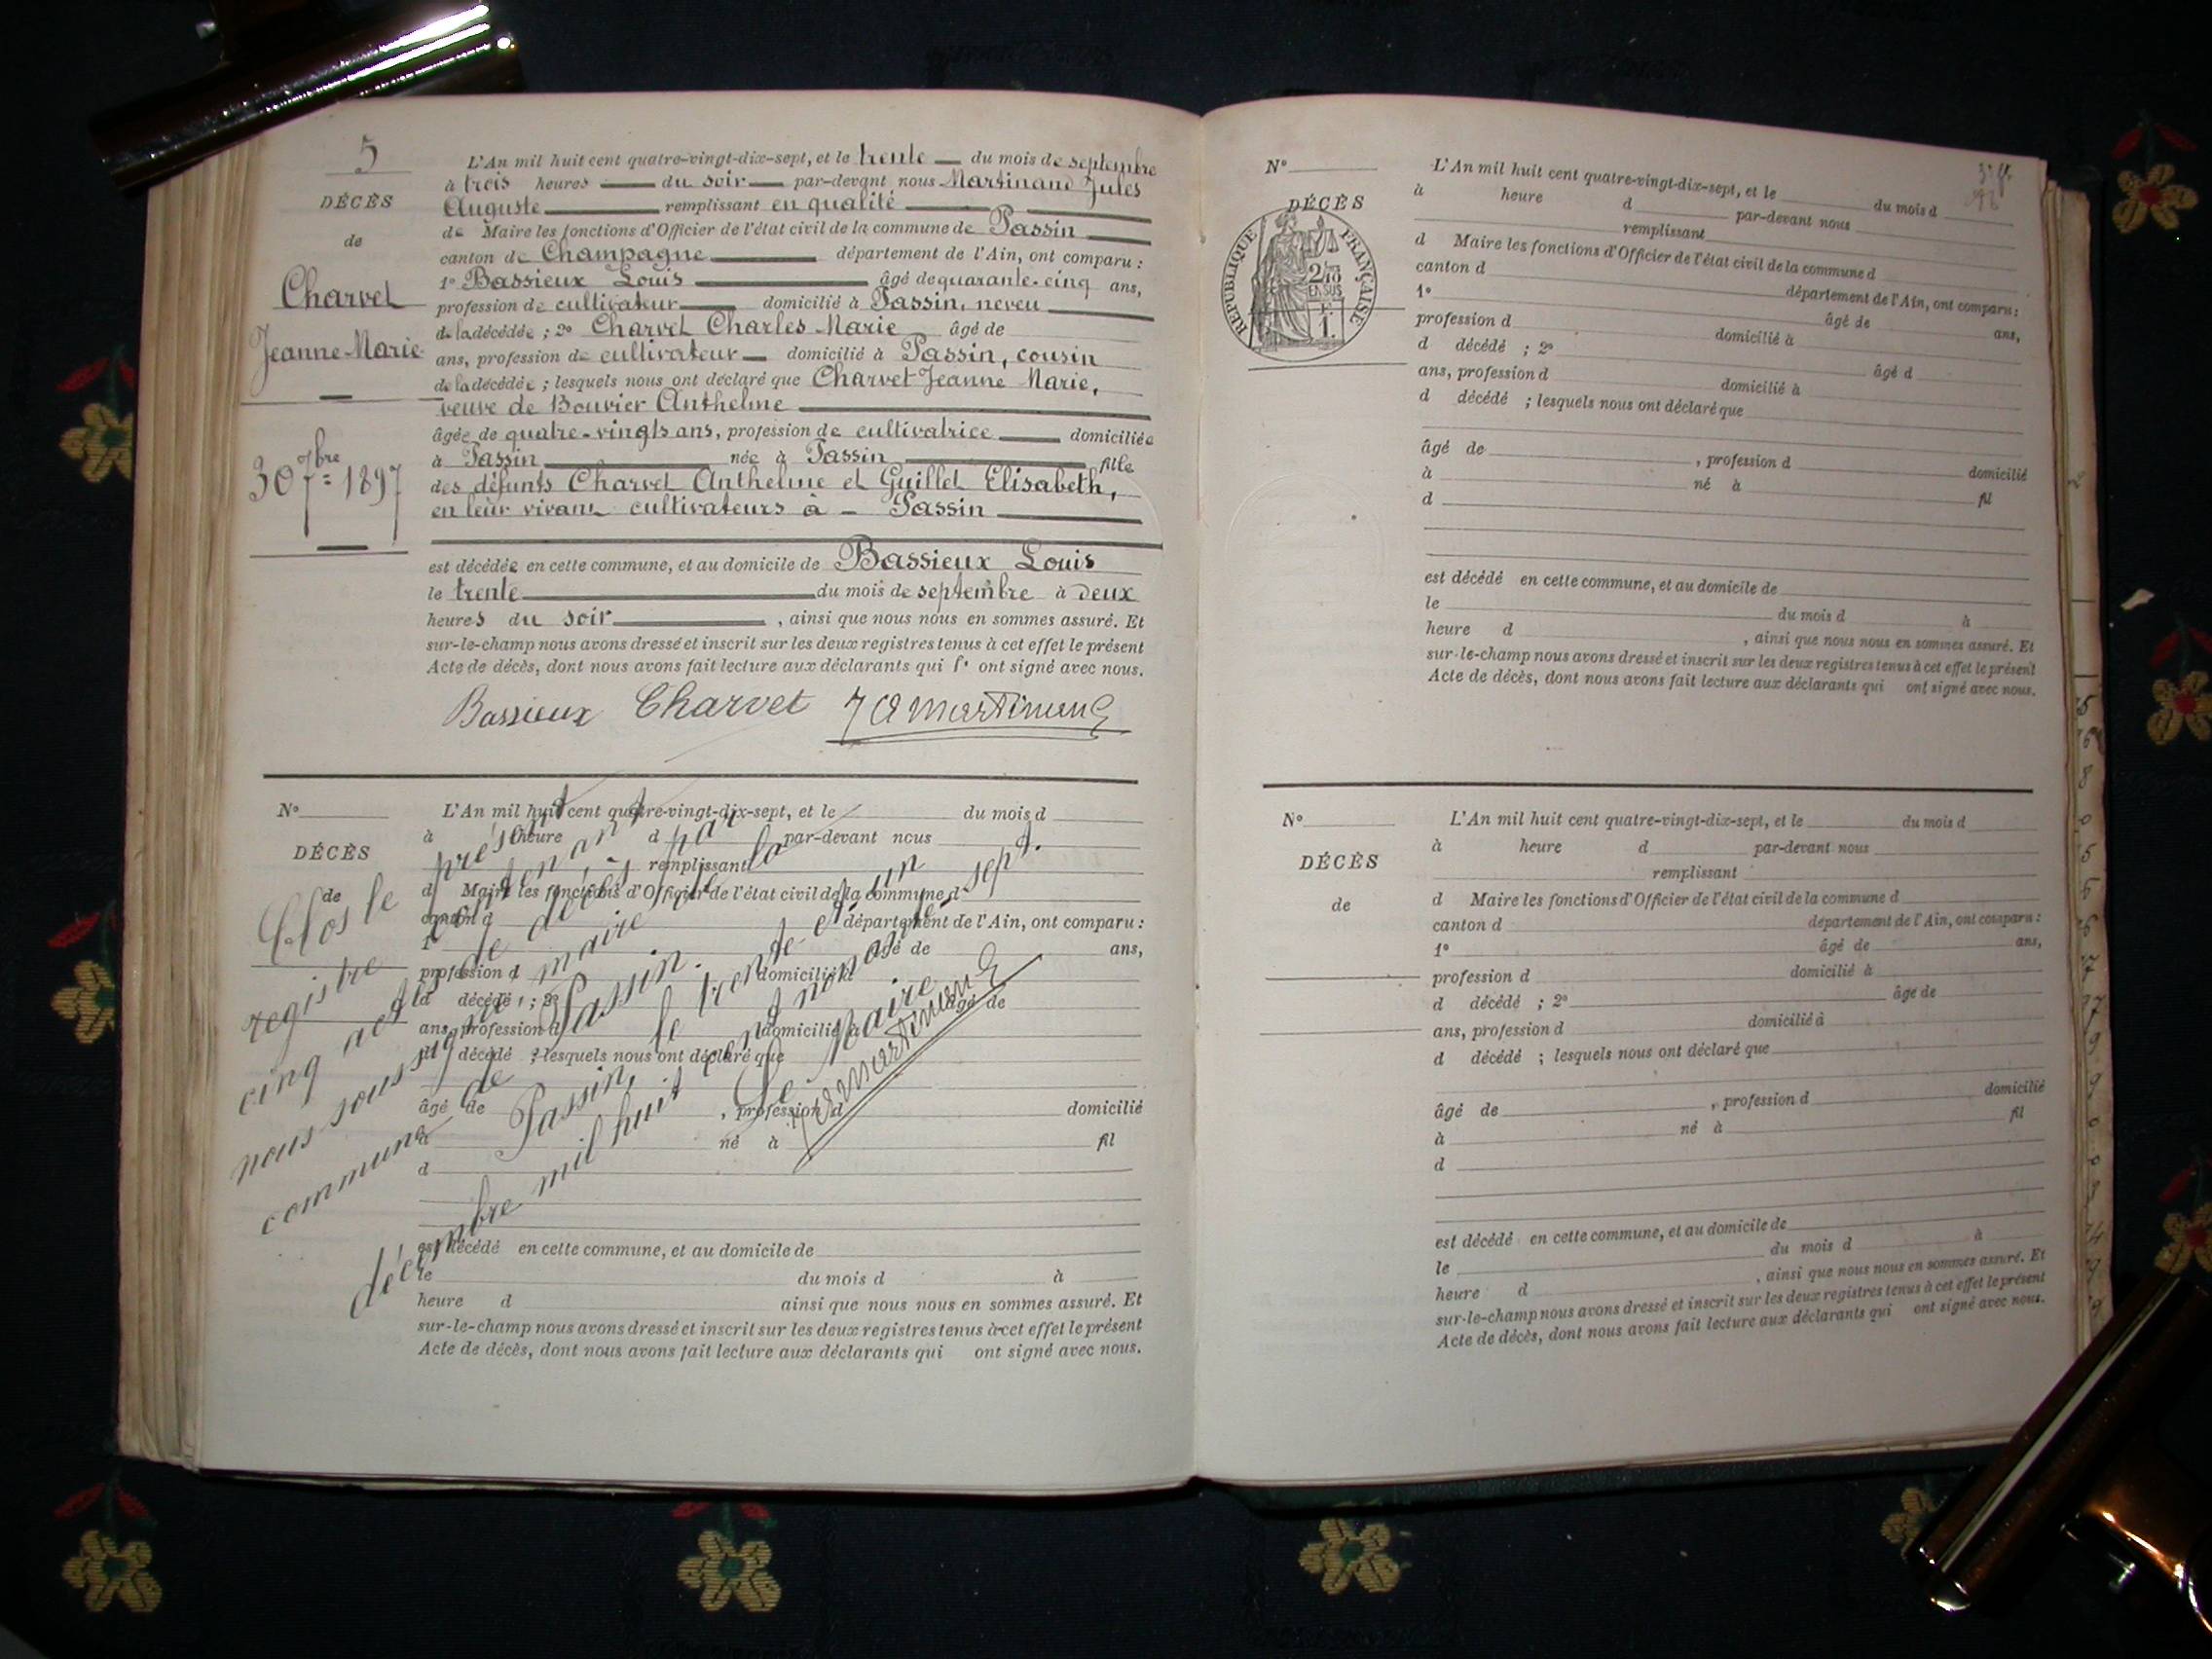 5
DÉCÈS
de
Charvet
Jeanne-Marie
30 7bre 1897
L'An mil huit cent quatre-vingt-dix-sept, et le trente du mois de septembre
à trois heures du soir par-devant nous Martinand Jules
Auguste remplissant en qualité
de Maire les fonctions d'Officier de l'état civil de la commune de Passin
canton de Champagne département de l'Ain, ont comparu :
1º Bassieux Louis âgé de quarante-cinq ans,
profession de cultivateur domicilié à Passin, neveu
de la décédée ; 2º Charvet Charles-Marie âgé de
ans, profession de cultivateur domicilié à Passin, cousin
de la décédée ; lesquels nous ont déclaré que Charvet Jeanne Marie,
veuve de Bouvier Anthelme
âgée de quatre-vingts ans, profession de cultivatrice domiciliée
à Passin née à Passin fille
des défunts Charvet Anthelme et Guillet Elisabeth,
en leur vivant cultivateurs à - Passin
est décédée en cette commune, et au domicile de Bassieux Louis
le trente du mois de septembre à deux
heures du soir , ainsi que nous nous en sommes assuré. Et
sur-le-champ nous avons dressé et inscrit sur les deux registres tenus à cet effet le présent
Acte de décès, dont nous avons fait lecture aux déclarants qui ont signé avec nous.
Bassieux Charvet J A Martinand
Nº
DÉCÈS
de
L'An mil huit cent quatre-vingt-dix-sept, et le du mois d
à heure d par-devant nous
remplissant
d Maire les fonctions d'Officier de l'état civil de la commune d
canton d département de l'Ain, ont comparu :
1º âgé de ans,
profession d domicilié à
d décédé ; 2º âgé de
ans, profession d domicilié à
d décédé ; lesquels nous ont déclaré que
âgé de , profession d domicilié
à né à fil
d
est décédé en cette commune, et au domicile de
le du mois d à
heure d ainsi que nous nous en sommes assuré. Et
sur-le-champ nous avons dressé et inscrit sur les deux registres tenus à cet effet le présent
Acte de décès, dont nous avons fait lecture aux déclarants qui ont signé avec nous.
Clos le présent
registre contenant
cinq actes de décès par
nous soussigné maire de la
commune de Passin.
Passin, le trente et un
décembre mil huit cent nonante sept.
Le Maire
J A Martinand
Nº
DÉCÈS
RÉPUBLIQUE FRANÇAISE
2/10 EN SUS
L'An mil huit cent quatre-vingt-dix-sept, et le du mois d
à heure d par-devant nous
remplissant
d Maire les fonctions d'Officier de l'état civil de la commune d
canton d département de l'Ain, ont comparu :
1º âgé de ans,
profession d domicilié à
d décédé ; 2º âgé d
ans, profession d domicilié à
d décédé ; lesquels nous ont déclaré que
âgé de , profession d domicilié
à né à fil
d
est décédé en cette commune, et au domicile de
le du mois d à
heure d , ainsi que nous nous en sommes assuré. Et
sur-le-champ nous avons dressé et inscrit sur les deux registres tenus à cet effet le présent
Acte de décès, dont nous avons fait lecture aux déclarants qui ont signé avec nous.
Nº
DÉCÈS
de
L'An mil huit cent quatre-vingt-dix-sept, et le du mois d
à heure d par-devant nous
remplissant
d Maire les fonctions d'Officier de l'état civil de la commune d
canton d département de l'Ain, ont comparu :
1º âgé de ans,
profession d domicilié à
d décédé ; 2º âge de
ans, profession d domicilié à
d décédé ; lesquels nous ont déclaré que
âgé de , profession d domicilié
à né à fil
d
est décédé en cette commune, et au domicile de
le du mois d à
heure d , ainsi que nous nous en sommes assuré. Et
sur-le-champ nous avons dressé et inscrit sur les deux registres tenus à cet effet le présent
Acte de décès, dont nous avons fait lecture aux déclarants qui ont signé avec nous.